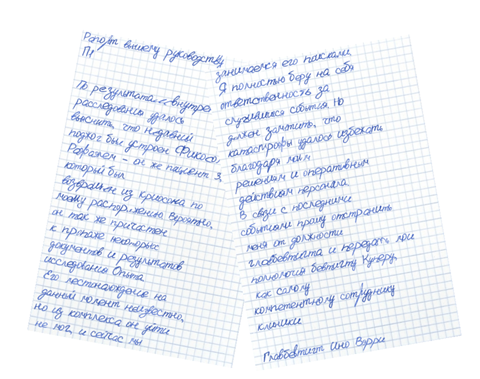 Рапорт вышему руководству
П1
По результата
расследования удалось
выяснить, что недавний
поджог был устроен Фикосо,
Рафаэлем - он же пациент 3,
который был
возвращен из Криосна по
моему распоряжению. Вероятно,
он так же причастен
к пропаже некоторых
документов и результатов
исследования Опыта
Его местонахождение на
данный момент неизвестно,
но из комплекса он уйти
не мог, и сейчас мы
занимаемся его поисками
Я полностью беру на себя
ответственность за
случившиеся события, но
должен заметить, что
катастрофы удалось избежать
благодаря моим
решениям и оперативным
действиям персонала
В связи с последними
событиями прошу отстранить
меня от должности
и передать мои
полномочия Куперу,
как самому
компетентному сотруднику
клиники
Ино Вурри